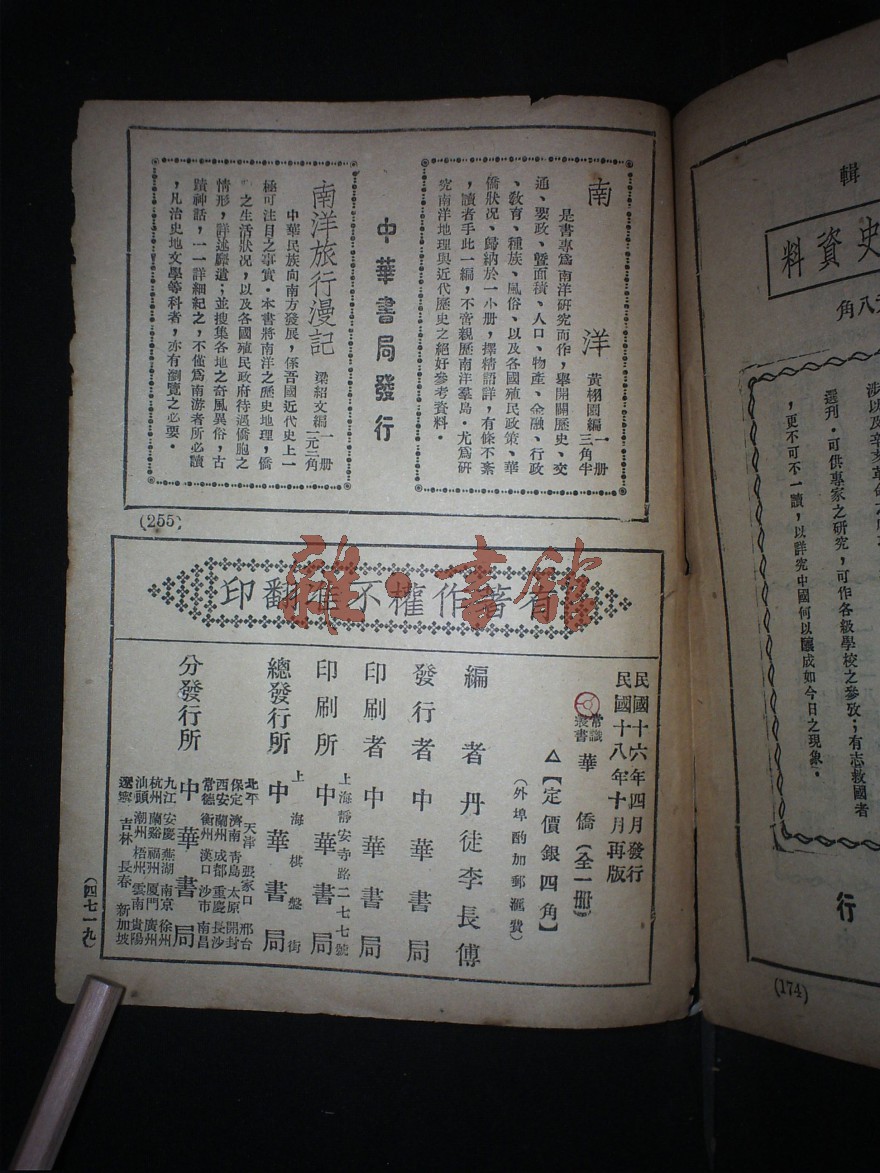 輯
史資料
八角
涉以及辛亥革命
選刊．可供專家之研究，可作各級學校之參攷；有志救國者
，更不可不一讀，以詳究中國何以釀成如今日之現象．
行
(174)
南洋
黃栩園編 一册
三角半
是書專爲南洋研究而作，舉開闢歷史、交
通、要政、曁面積、人口、物產、金融、行政
、敎育、種族、風俗、以及各國殖民政策、華
僑狀况、歸納於一小册，擇精語詳，有條不紊
，讀者手此一編，不啻親歷南洋羣島．尤爲研
究南洋地理與近代歷史之絕好參考資料．
中華書局發行
南洋旅行漫記
梁紹文編 一册
一元二角
中華民族向南方發展，係吾國近代史上一
極可注目之事實．本書將南洋之歷史地理，僑
之生活狀况，以及各國殖民政府待遇僑胞之
情形，詳述靡遺；並搜集各地之奇風異俗，古
蹟神話，一一詳細紀之，不僅爲南游者所必讀
，凡治史地文學等科者，亦有瀏覽之必要．
(255)
有著作權不准翻印
雜·書館
民國十六年四月發行
民國十八年十月再版
常識叢書 華僑（全一册）
△【定價銀四角】
（外埠酌加郵滙費）
編者 丹徒李長傅
發行者 中華書局
印刷者 中華書局
上海靜安寺路二七七號
印刷所 中華書局
上海棋盤街
總發行所 中華書局
分發行所 中華書局
北平 天津 張家口 邢台
保定 濟南 青島 太原 開封
西安 蘭州 成都 重慶 長沙
常德 衡州 漢口 沙市 南昌
九江 安慶 蕪湖 南京 徐州
杭州 蘭谿 福州 厦門 廣州
汕頭 潮州 梧州 雲南 貴陽
遼寧 吉林 長春 新加坡
（四七一九）